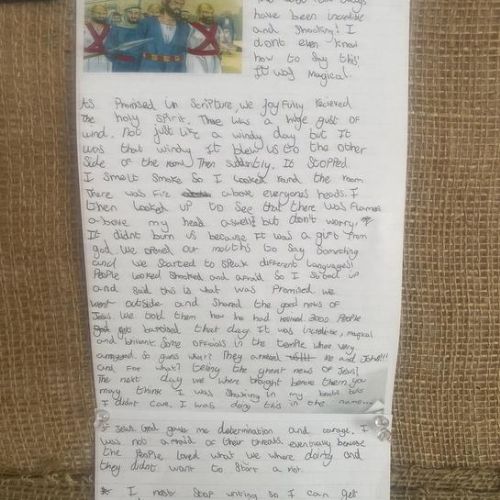 have been incredible
and shocking! I
dont even know
how to say this
It was magical.
As Promised in Scripture, we Joyfully recieved
the holy spirit. There was a huge gust of
wind. Not just like a windy day but It
was that windy it blew us to the other
side of the room. Then suddently. It Stopped
I smelt smoke so I looked round the room
There was Fire above everyones heads. I
then looked up to see that there was Flames
above my head aswell! but don't worry,
It didnt burn us because It was a gift from
god. We opened our mouths to say Something
and we started to speak different languages!
People looked shocked and afraid So I stood up
and said this is what was Promised. We
went outside and shared the good news of
Jesus. We told them how he had 3000 People
got baptised that day. It was incredible, magical
and brilliant. Some officials in the temple where very
So guess what? They me and John!!!
and For what? teling the great news of Jesus!
The next day we where brought before them, you
may think I was shaking in my boots but
I didnt care. I was doing this in the name...
Jesus. God gave me determination and courage. I
was not afraid of their threats. eventually because
the People loved what we where doing and
they didnt want to start a riot.
I must stop writing so I can get